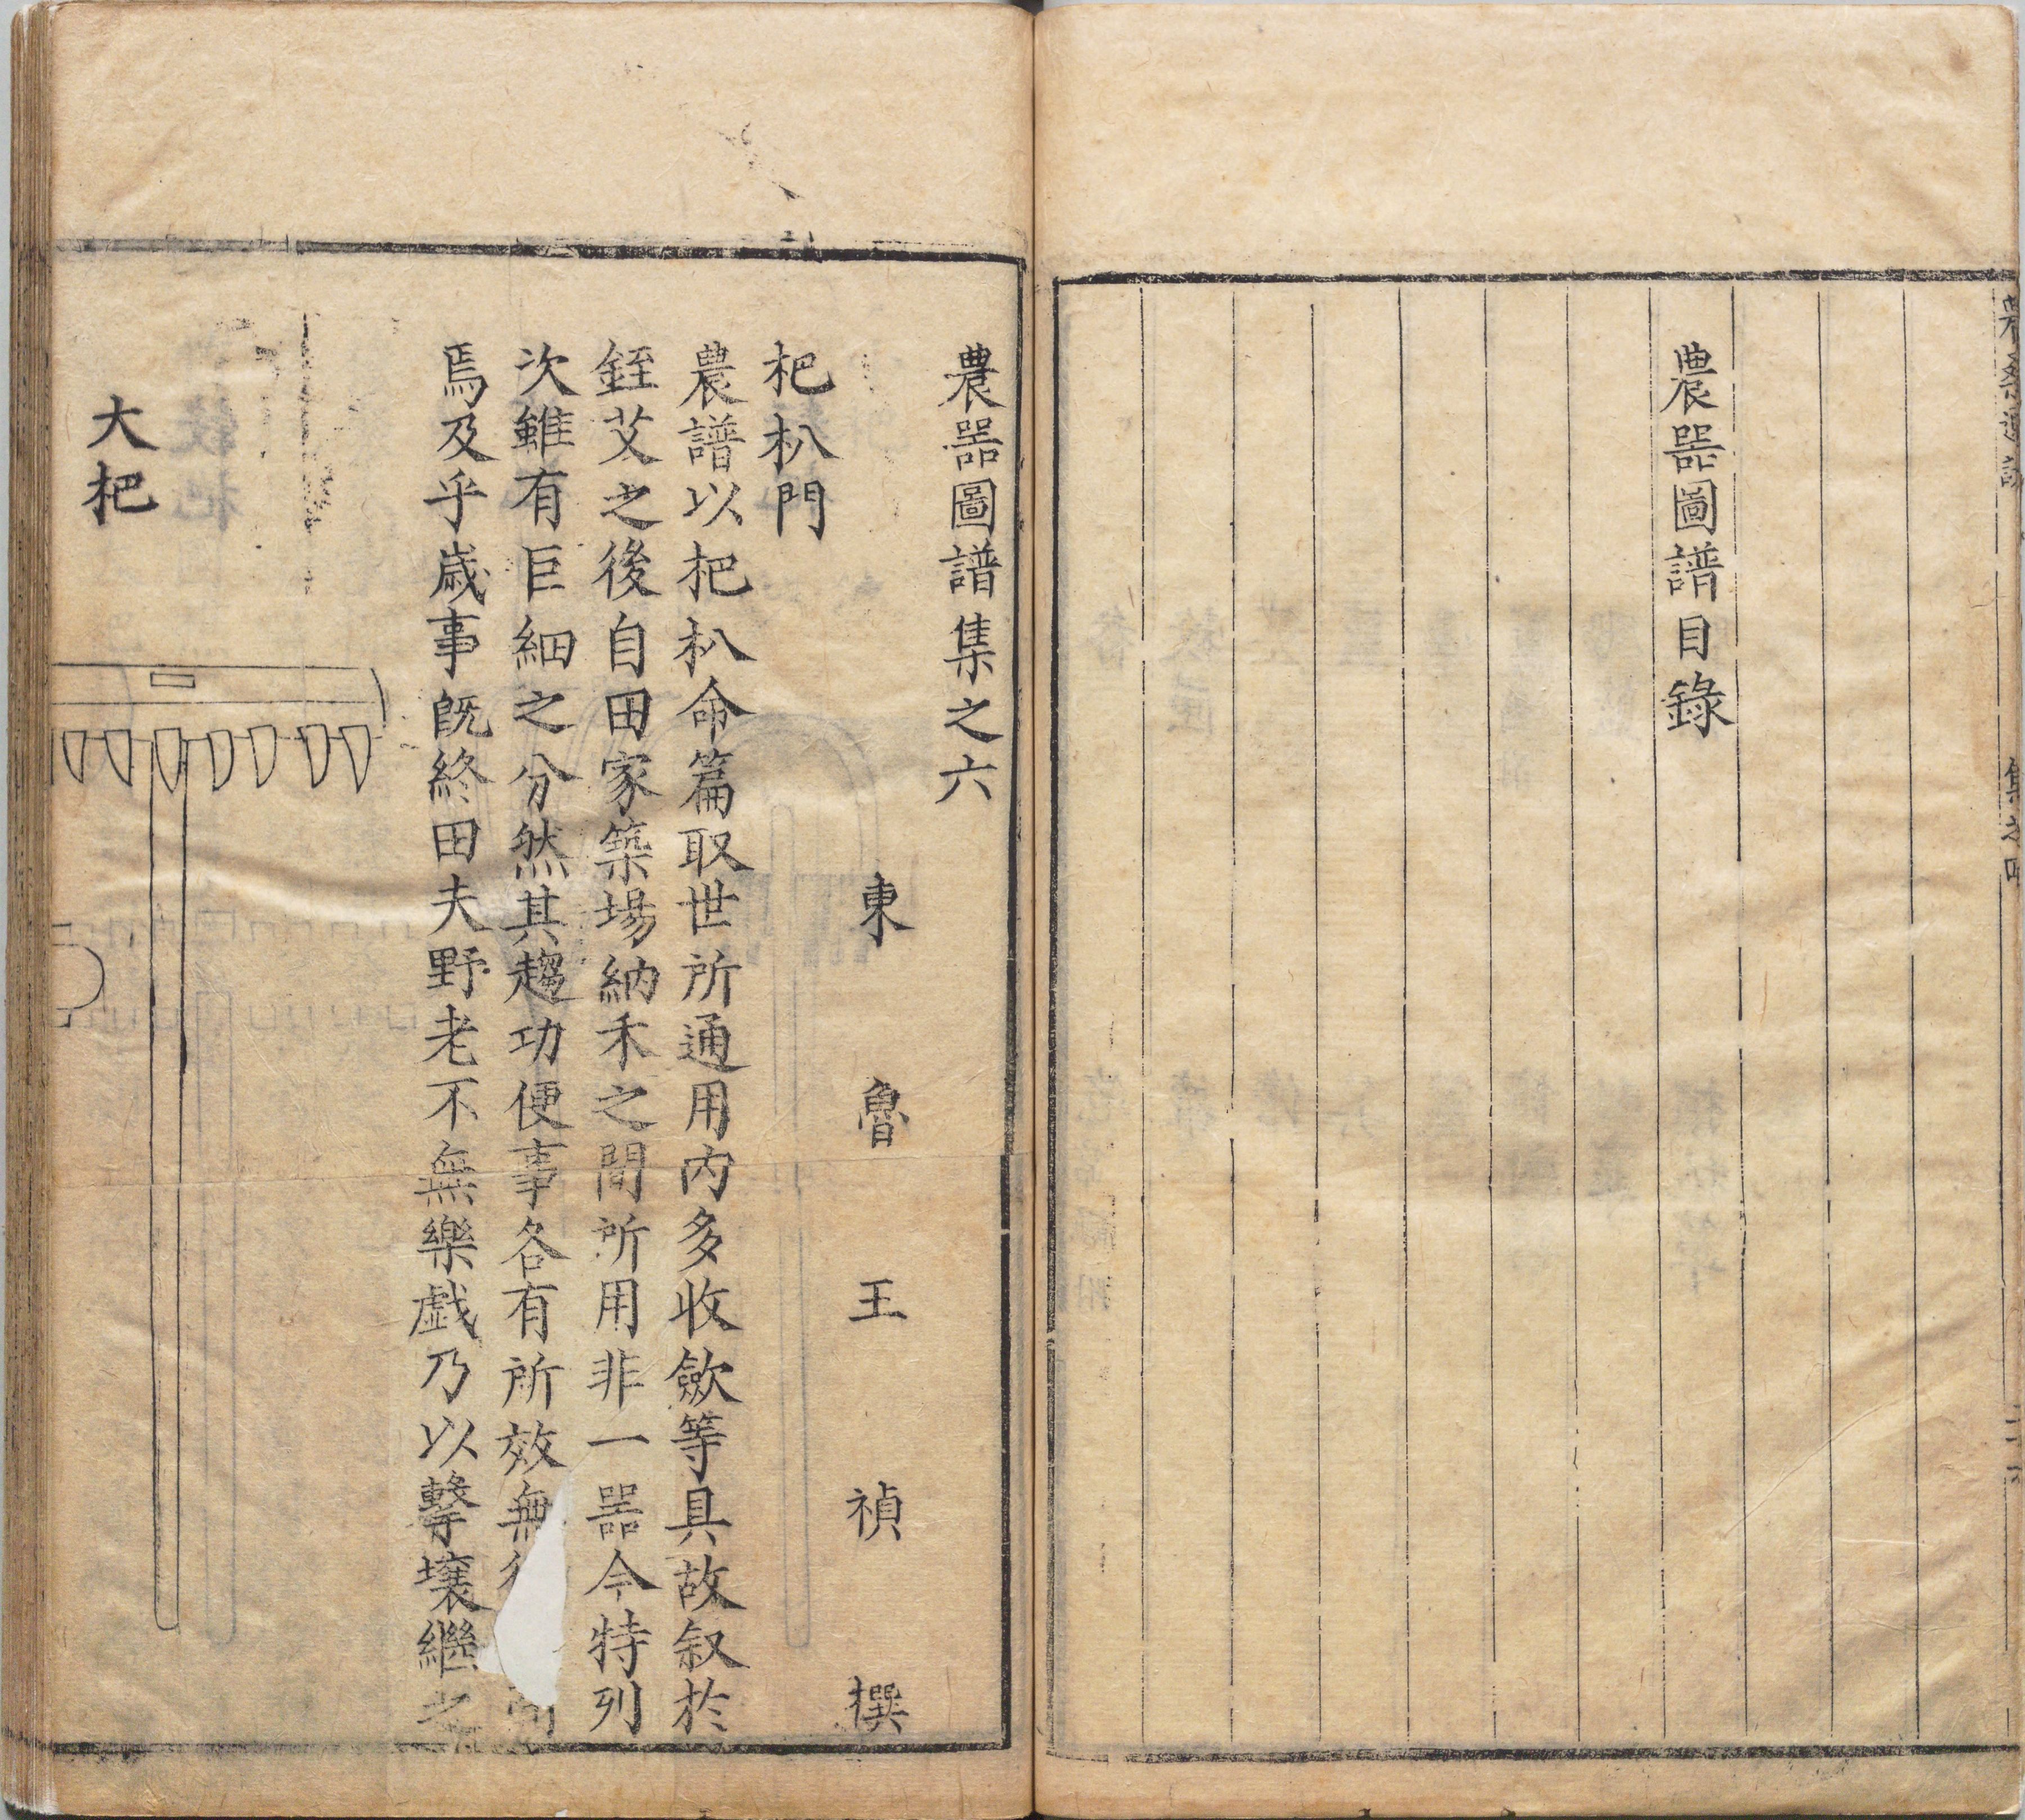 集之四
農器圖譜目錄
農器圖譜集之六
東魯王禎撰
杷朳門
農譜以杷朳命篇取世所通用内多收斂等具故叙於
銍艾之後自田家築場納禾之間所用非一器今特列
次雖有巨細之分然其趨功便事各有所效無
焉及乎歲事旣終田夫野老不無樂戯乃以擊壤繼之
大杷